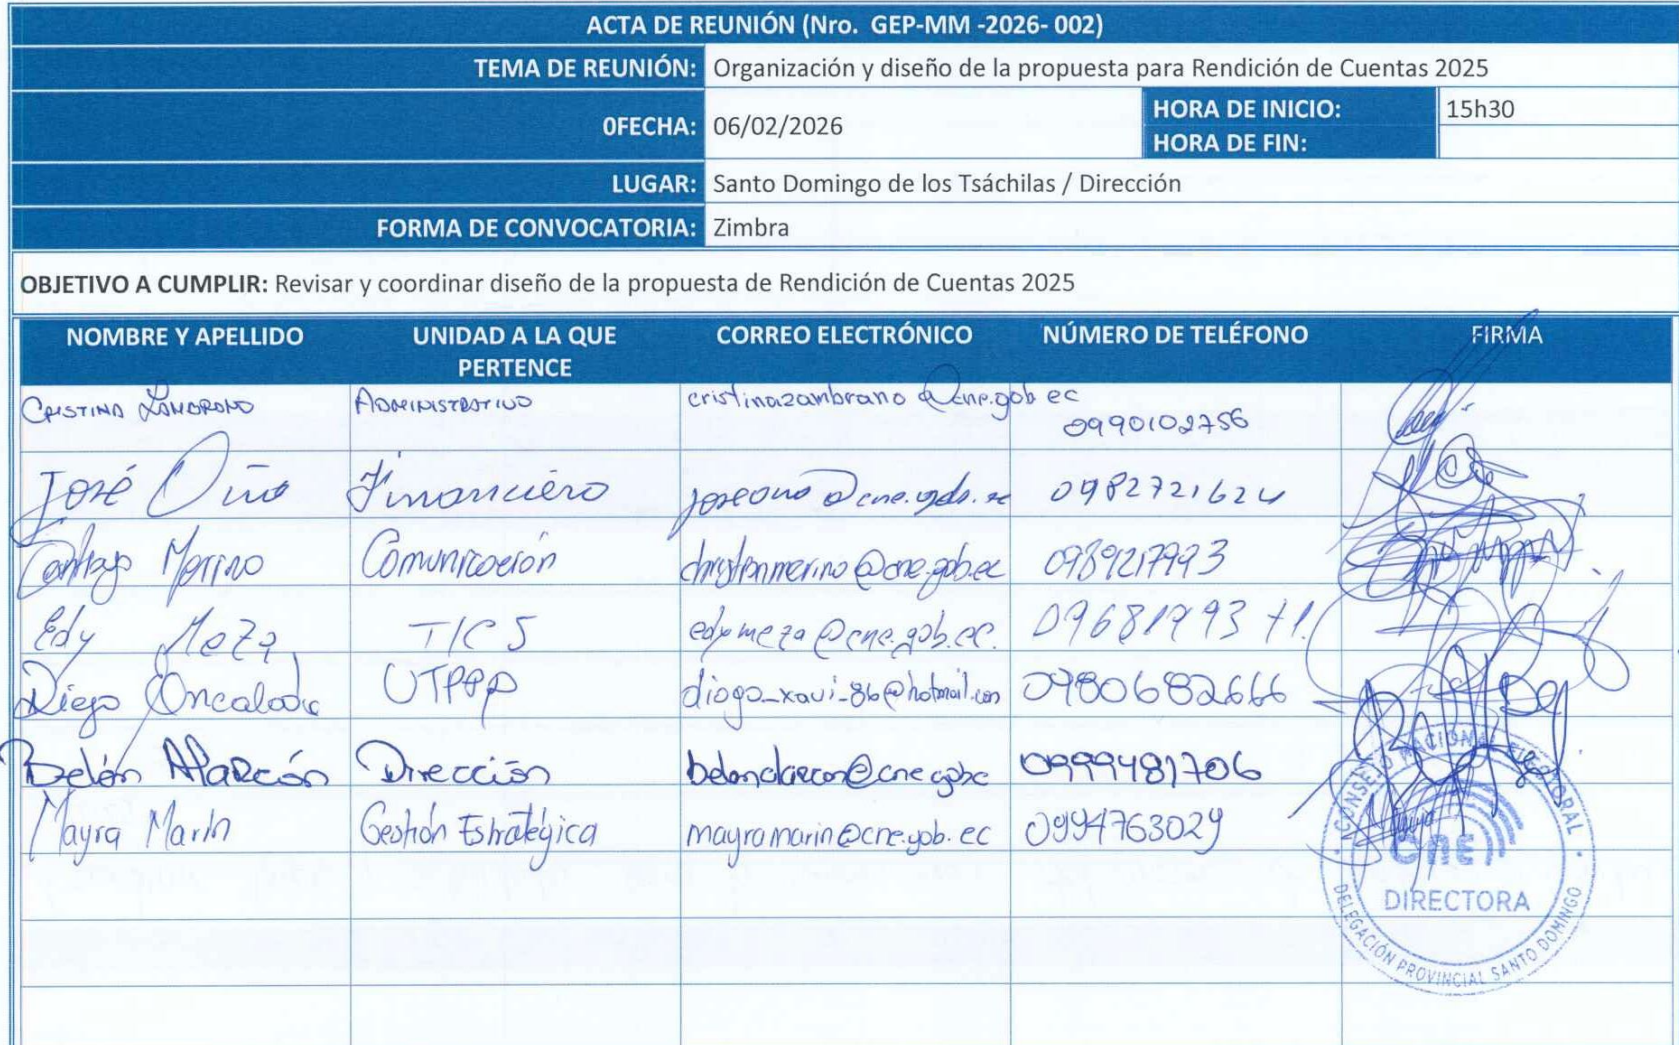 ACTA DE REUNIÓN (Nro. GEP-MM -2026- 002)
TEMA DE REUNIÓN: Organización y diseño de la propuesta para Rendición de Cuentas 2025
0FECHA: 06/02/2026
HORA DE INICIO: 15h30
HORA DE FIN:
LUGAR: Santo Domingo de los Tsáchilas / Dirección
FORMA DE CONVOCATORIA: Zimbra
OBJETIVO A CUMPLIR: Revisar y coordinar diseño de la propuesta de Rendición de Cuentas 2025
NOMBRE Y APELLIDO UNIDAD A LA QUE PERTENCE CORREO ELECTRÓNICO NÚMERO DE TELÉFONO FIRMA
CRISTINA ZAMBRANO ADMINISTRATIVO cristinazambrano@cne.gob ec 0990102756
José Oña Financiero 0982721624
Merino Comunicación 0989217993
Edy Meza TICS edymeza@cne.gob.ec. 0968199371.
Diego Oncalada UTPPP diego_xavi_86@hotmail.com 0980682666
Belén Alarcón Dirección 0999481706
Mayra Marín Gestión Estratégica mayramarin@cne.gob.ec 0994763029
CONSEJO NACIONAL ELECTORAL
cne
DIRECTORA
DELEGACIÓN PROVINCIAL SANTO DOMINGO